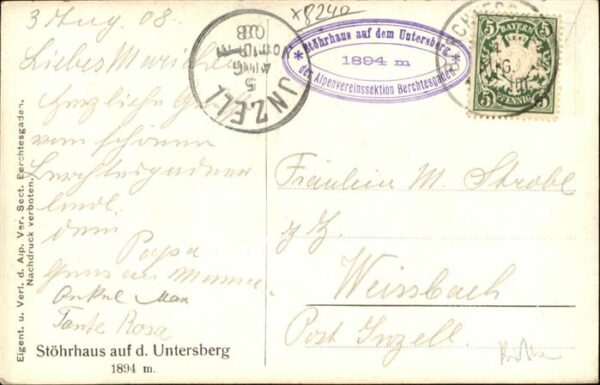 3 Aug. 08.
x8240
Liebes Mariechen
Herzliche Gr
vom schönen
Berchtesgadener
land
dein
Papa
Gruss an Mama
Onkel Max
Tante Rosa
Stöhrhaus auf d. Untersberg
1894 m.
Eigent. u. Verl. d. Alp. Ver. Sect. Berchtesgaden.
Nachdruck verboten.
INZELL
5
AUG
08
* Stöhrhaus auf dem Untersberg *
1894 m
der Alpenvereinssektion Berchtesgaden
BAYERN
5 5
PFENNIG
AUG.
Fräulein M. Strobl
z Z.
Weissbach
Post Inzell